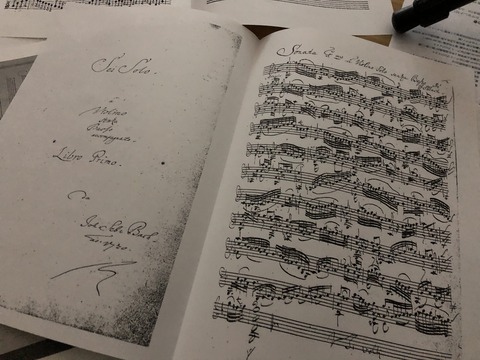 Sei Solo.
â
Violino
senza
Basso
accompagnato.
Libro Primo.
da
Joh: Seb: Bach.
ao. 1720.
Sonata 1ma â Violino Solo senza Basso